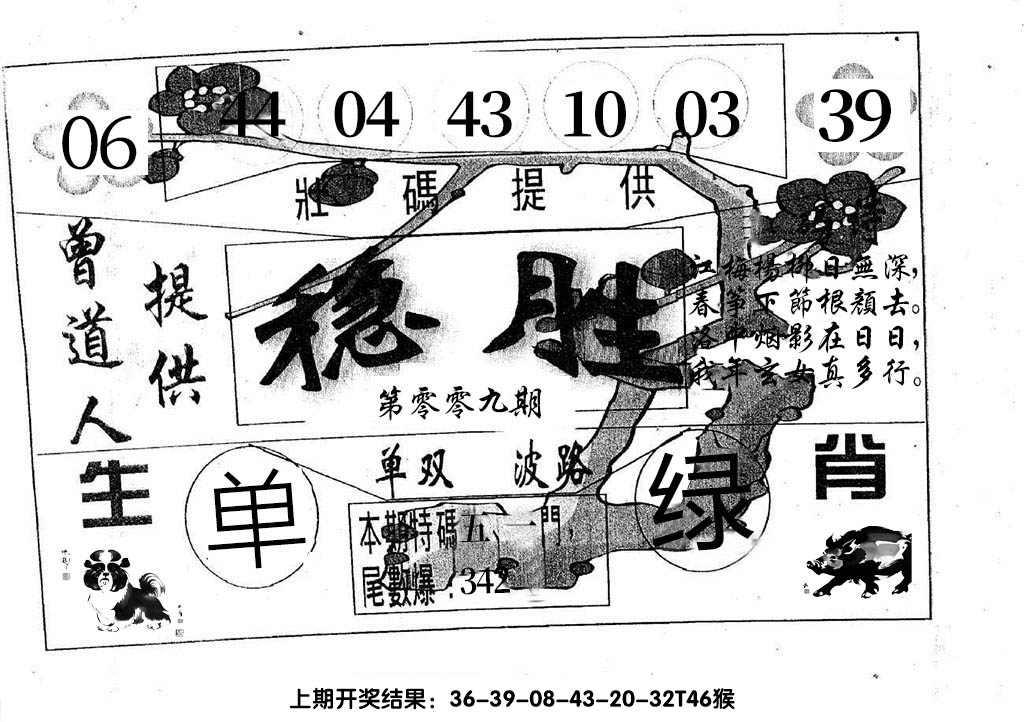 06 44 04 43 10 03 39
壯碼提供
特
曾道人
提供
稳胜
第零零九期
江梅楊柳日無深，
春筝下節根顏去。
洛中烟影在日日，
我年玄女真多行。
单双 波路
生
肖
单
绿
本期特碼五、一門，
尾數爆：342
上期开奖结果：36-39-08-43-20-32T46猴